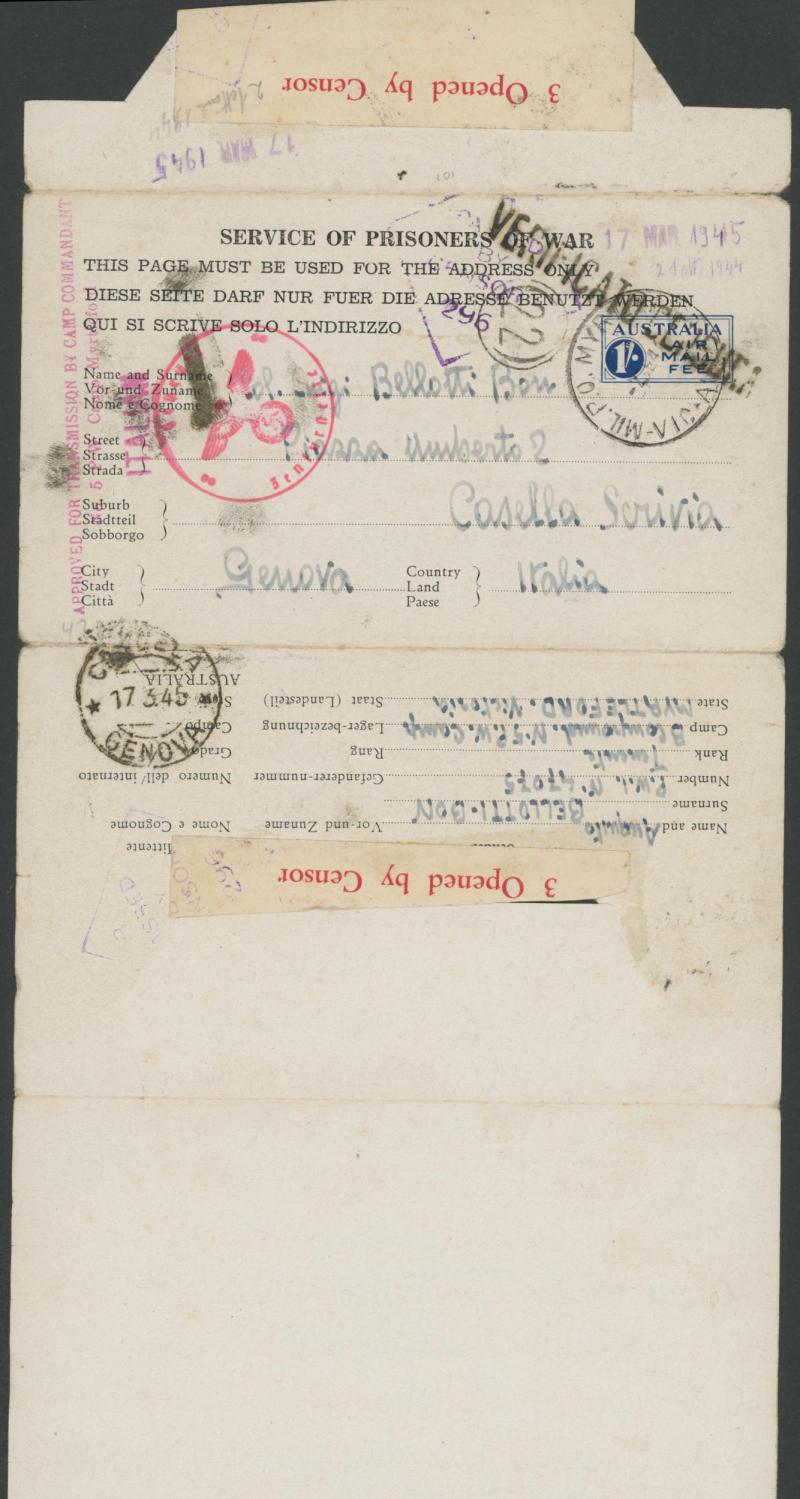 3 Opened by Censor
2 1944
17 MAR 1945
SERVICE OF PRISONERS OF WAR
17 MAR 1945
2 1944
THIS PAGE MUST BE USED FOR THE ADDRESS ONLY
DIESE SEITE DARF NUR FUER DIE ADRESSE BENUTZT WERDEN
QUI SI SCRIVE SOLO L'INDIRIZZO
VERIFICATO PER CENSURA
(22)
296
AUSTRALIA
1/-
AIR
MAIL
FEE
APPROVED FOR TRANSMISSION BY CAMP COMMANDANT
ITALIAN
Name and Surname
Vor-und Zuname
Nome e Cognome
Luigi Bellotti Bon
Street
Strasse
Strada
Piazza Umberto 2
Suburb
Stadtteil
Sobborgo
Casella Scrivia
City
Stadt
Città
Genova
Country
Land
Paese
Italia
CASELLA
17.3.45
GENOVA
3 Opened by Censor
mittente
Name and Surname Vor-und Zuname Nome e Cognome
Augusto
BELLOTTI-BON
Number Gefangerer-nummer Numero dell'internato
P.W.I. N° 47075
Rank Rang Grado
Tenente
Camp Lager-bezeichnung Campo
B Compound. N° 5 P.W. Camp
State Staat (Landesteil)
MYRTLEFORD. Victoria
AUSTRALIA